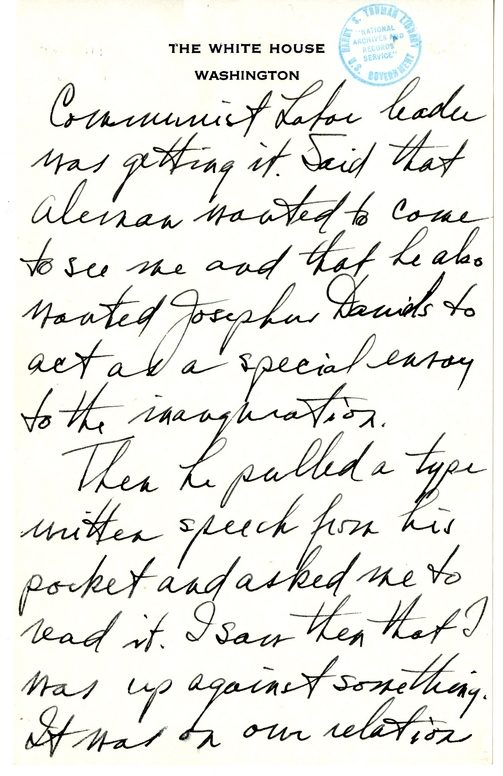 THE WHITE HOUSE
WASHINGTON
U.S. HARRY S. TRUMAN LIBRARY
"NATIONAL
ARCHIVES AND
RECORDS
SERVICE"
GOVERNMENT
Communist Labor leader
was getting it. Said that
Aleman wanted to come
to see me and that he also
wanted Josephus Daniels to
act as a special envoy
to the inauguration.
Then he pulled a type
written speech from his
pocket and asked me to
read it. I saw then that I
was up against something.
It was on our relation